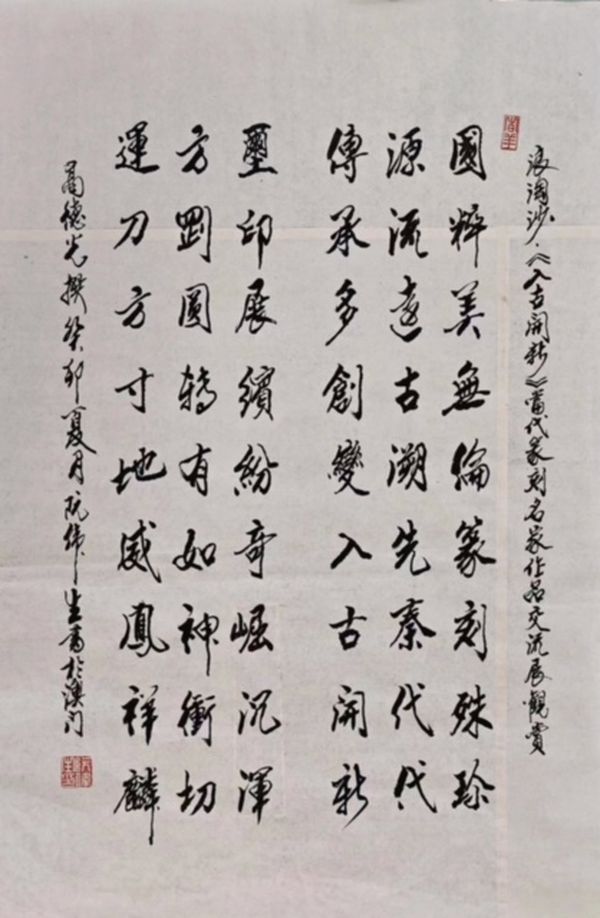 浪淘沙·《入古開新》當代篆刻名家作品交流展觀賞
國粹美無倫篆刻殊珍
源流遠古溯先秦代代
傳承多創變入古開新
璽印展繽紛奇崛沉渾
方劉圓轉有如神衝切
運刀方寸地威鳳祥麟
德光撰癸卯夏月阮偉生書於澳门